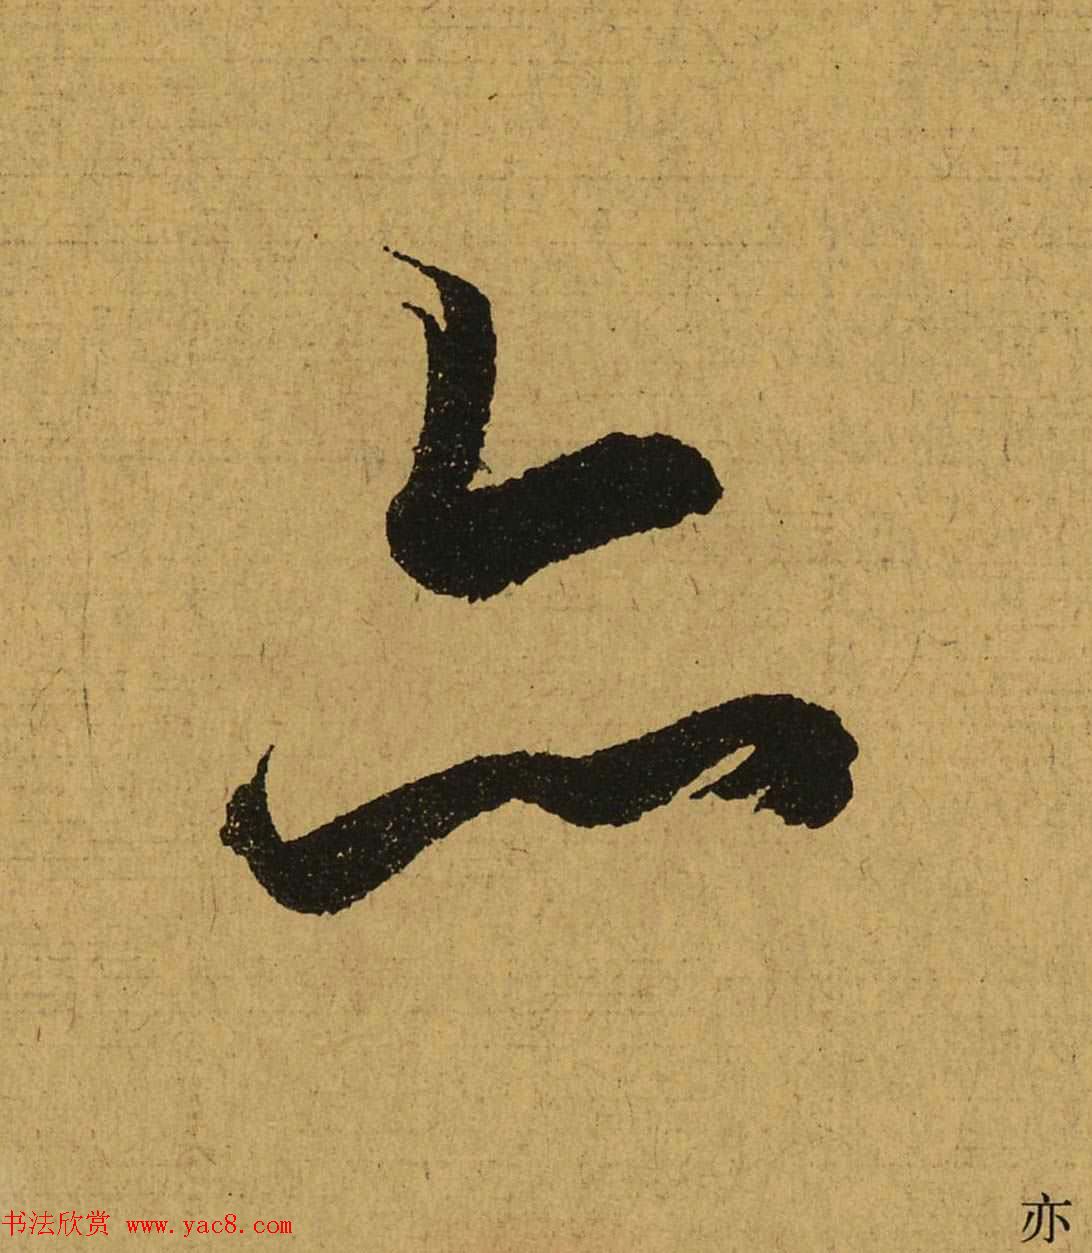 亦
书法欣赏 www.yac8.com
亦